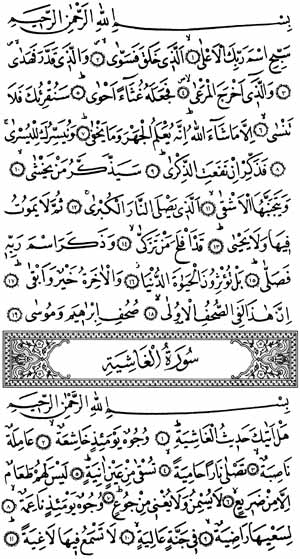 بِسْمِ اللهِ الرَّحْمٰنِ الرَّحِيمِ
سَبِّحِ اسْمَ رَبِّكَ الْاَعْلٰىۙ ﴿١﴾ اَلَّذ۪ي خَلَقَ فَسَوّٰىۙ ﴿٢﴾ وَالَّذ۪ي قَدَّرَ فَهَدٰىۙ
﴿٣﴾ وَالَّذ۪ٓي اَخْرَجَ الْمَرْعٰىۙ ﴿٤﴾ فَجَعَلَهُ غُثَٓاءً اَحْوٰىۜ ﴿٥﴾ سَنُقْرِئُكَ فَلَا
تَنْسٰىۙ ﴿٦﴾ اِلَّا مَا شَٓاءَ اللهُۜ اِنَّهُ يَعْلَمُ الْجَهْرَ وَمَا يَخْفٰىۜ ﴿٧﴾ وَنُيَسِّرُكَ لِلْيُسْرٰىۚ
﴿٨﴾ فَذَكِّرْ اِنْ نَفَعَتِ الذِّكْرٰىۜ ﴿٩﴾ سَيَذَّكَّرُ مَنْ يَخْشٰىۙ ﴿١٠﴾
وَيَتَجَنَّبُهَا الْاَشْقٰىۙ ﴿١١﴾ اَلَّذ۪ي يَصْلَى النَّارَ الْكُبْرٰىۚ ﴿١٢﴾ ثُمَّ لَا يَمُوتُ
ف۪يهَا وَلَا يَحْيٰىۜ ﴿١٣﴾ قَدْ اَفْلَحَ مَنْ تَزَكّٰىۙ ﴿١٤﴾ وَذَكَرَ اسْمَ رَبِّه۪
فَصَلّٰىۜ ﴿١٥﴾ بَلْ تُؤْثِرُونَ الْحَيٰوةَ الدُّنْيَاۘ ﴿١٦﴾ وَالْاٰخِرَةُ خَيْرٌ وَاَبْقٰىۜ ﴿١٧﴾
اِنَّ هٰذَا لَفِي الصُّحُفِ الْاُو۫لٰىۙ ﴿١٨﴾ صُحُفِ اِبْرٰه۪يمَ وَمُوسٰى ﴿١٩﴾
سُورَةُ الْغَاشِيَةِ
بِسْمِ اللهِ الرَّحْمٰنِ الرَّحِيمِ
هَلْ اَتٰيكَ حَد۪يثُ الْغَاشِيَةِۜ ﴿١﴾ وُجُوهٌ يَوْمَئِذٍ خَاشِعَةٌۙ ﴿٢﴾ عَامِلَةٌ
نَاصِبَةٌۙ ﴿٣﴾ تَصْلٰى نَارًا حَامِيَةًۙ ﴿٤﴾ تُسْقٰى مِنْ عَيْنٍ اٰنِيَةٍۜ ﴿٥﴾ لَيْسَ لَهُمْ طَعَامٌ
اِلَّا مِنْ ضَر۪يعٍۙ ﴿٦﴾ لَا يُسْمِنُ وَلَا يُغْن۪ي مِنْ جُوعٍۜ ﴿٧﴾ وُجُوهٌ يَوْمَئِذٍ نَاعِمَةٌۙ ﴿٨﴾
لِسَعْيِهَا رَاضِيَةٌۙ ﴿٩﴾ ف۪ي جَنَّةٍ عَالِيَةٍۙ ﴿١٠﴾ لَا تَسْمَعُ ف۪يهَا لَاغِيَةًۜ ﴿١١﴾